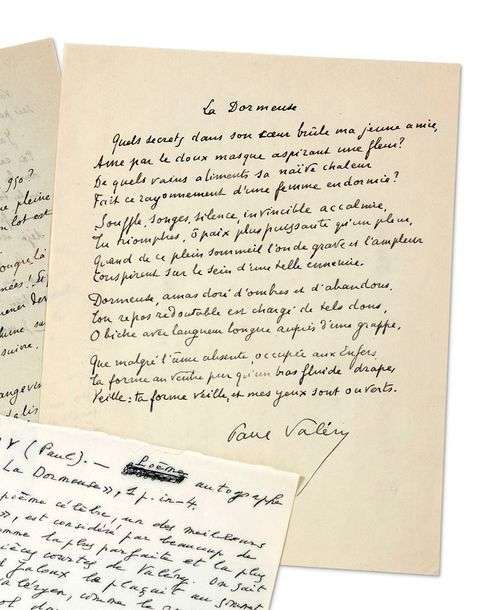 La Dormeuse
Quels secrets dans son cœur brûle ma jeune amie,
Ame par le doux masque aspirant une fleur?
De quels vains aliments sa naïve chaleur
Fait ce rayonnement d'une femme endormie?
Souffle, songes, silence, invincible accalmie,
Tu triomphes, ô paix plus puissante qu'un pleur,
Quand de ce plein sommeil l'onde grave et l'ampleur
Conspirent sur le sein d'une telle ennemie.
Dormeuse, amas doré d'ombres et d'abandons,
Ton repos redoutable est chargé de tels dons,
O biche avec langueur longue auprès d'une grappe,
Que malgré l'âme absente, occupée aux Enfers
Ta forme au ventre pur qu'un bras fluide drape,
Veille: ta forme veille, et mes yeux sont ouverts.
Paul Valéry
950?
pleine
lot est
suivre.
Y (Paul). — Poème autographe
La Dormeuse», 1 p. in-4.
poème célèbre, un des meilleurs
», est considéré par beaucoup de
comme la plus parfaite et la plus
pièces courtes de Valéry. On sait
Jaloux la plaçait au sommet
comme la